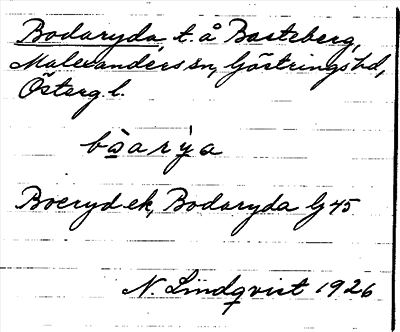 Bodaryda, t. å Bastsberg,
Malexanders sn, Göstrings hd,
Österg. l.
bà̱arẏa
Boeryd ek, Bodaryda G 45
N. Lindqvist 1926